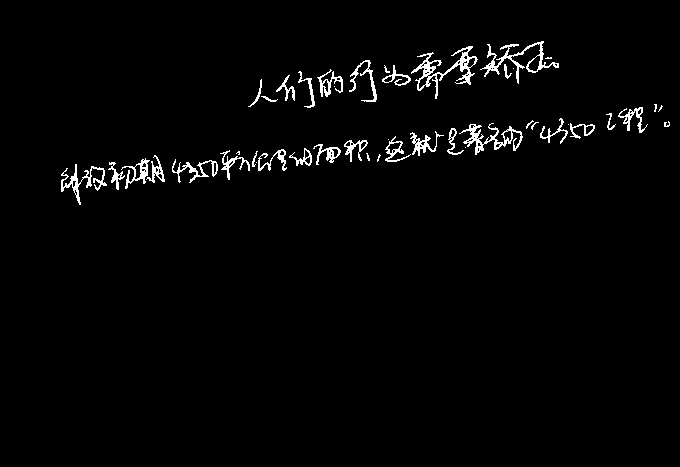 人们的行为需要矫正。
解放初期4350平方公里的面积,这就是著名的“4350工程”。